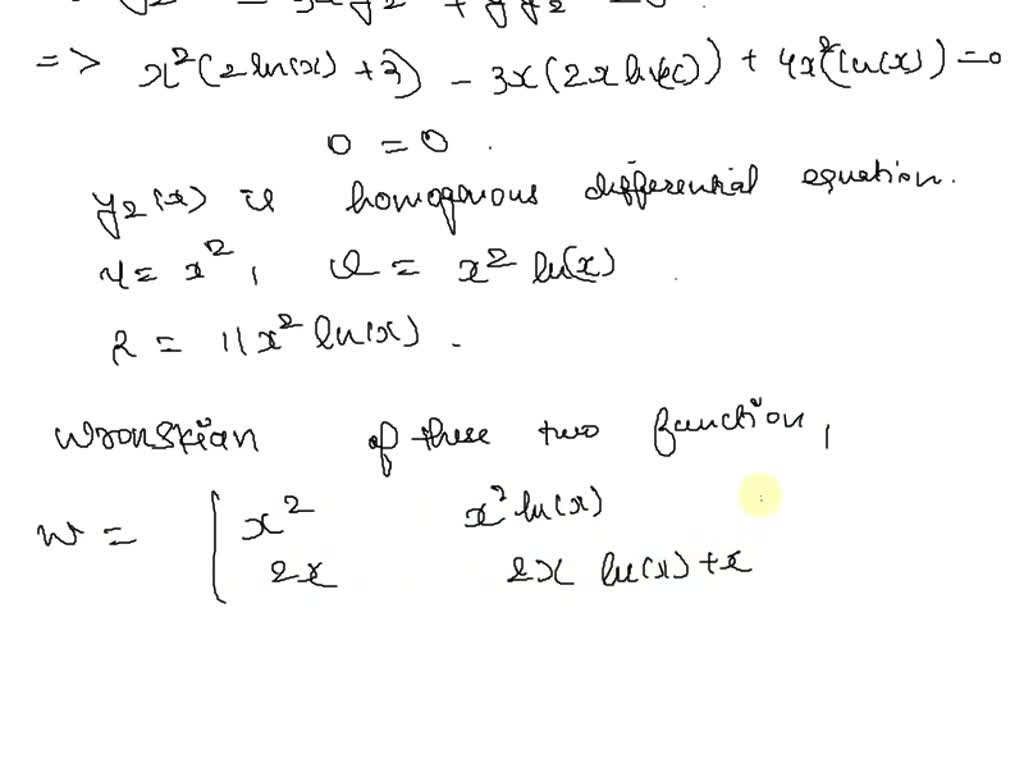 => x²(2 ln(x) + 3) - 3x(2x ln(x)) + 4x²(ln(x)) = 0
0 = 0 .
y₂(x) is homogenous differential equation.
u = x² , v = x² ln(x) .
R = 11x² ln(x) .
Wronskian of these two function ,
W = | x² x² ln(x)
2x 2x ln(x) + x